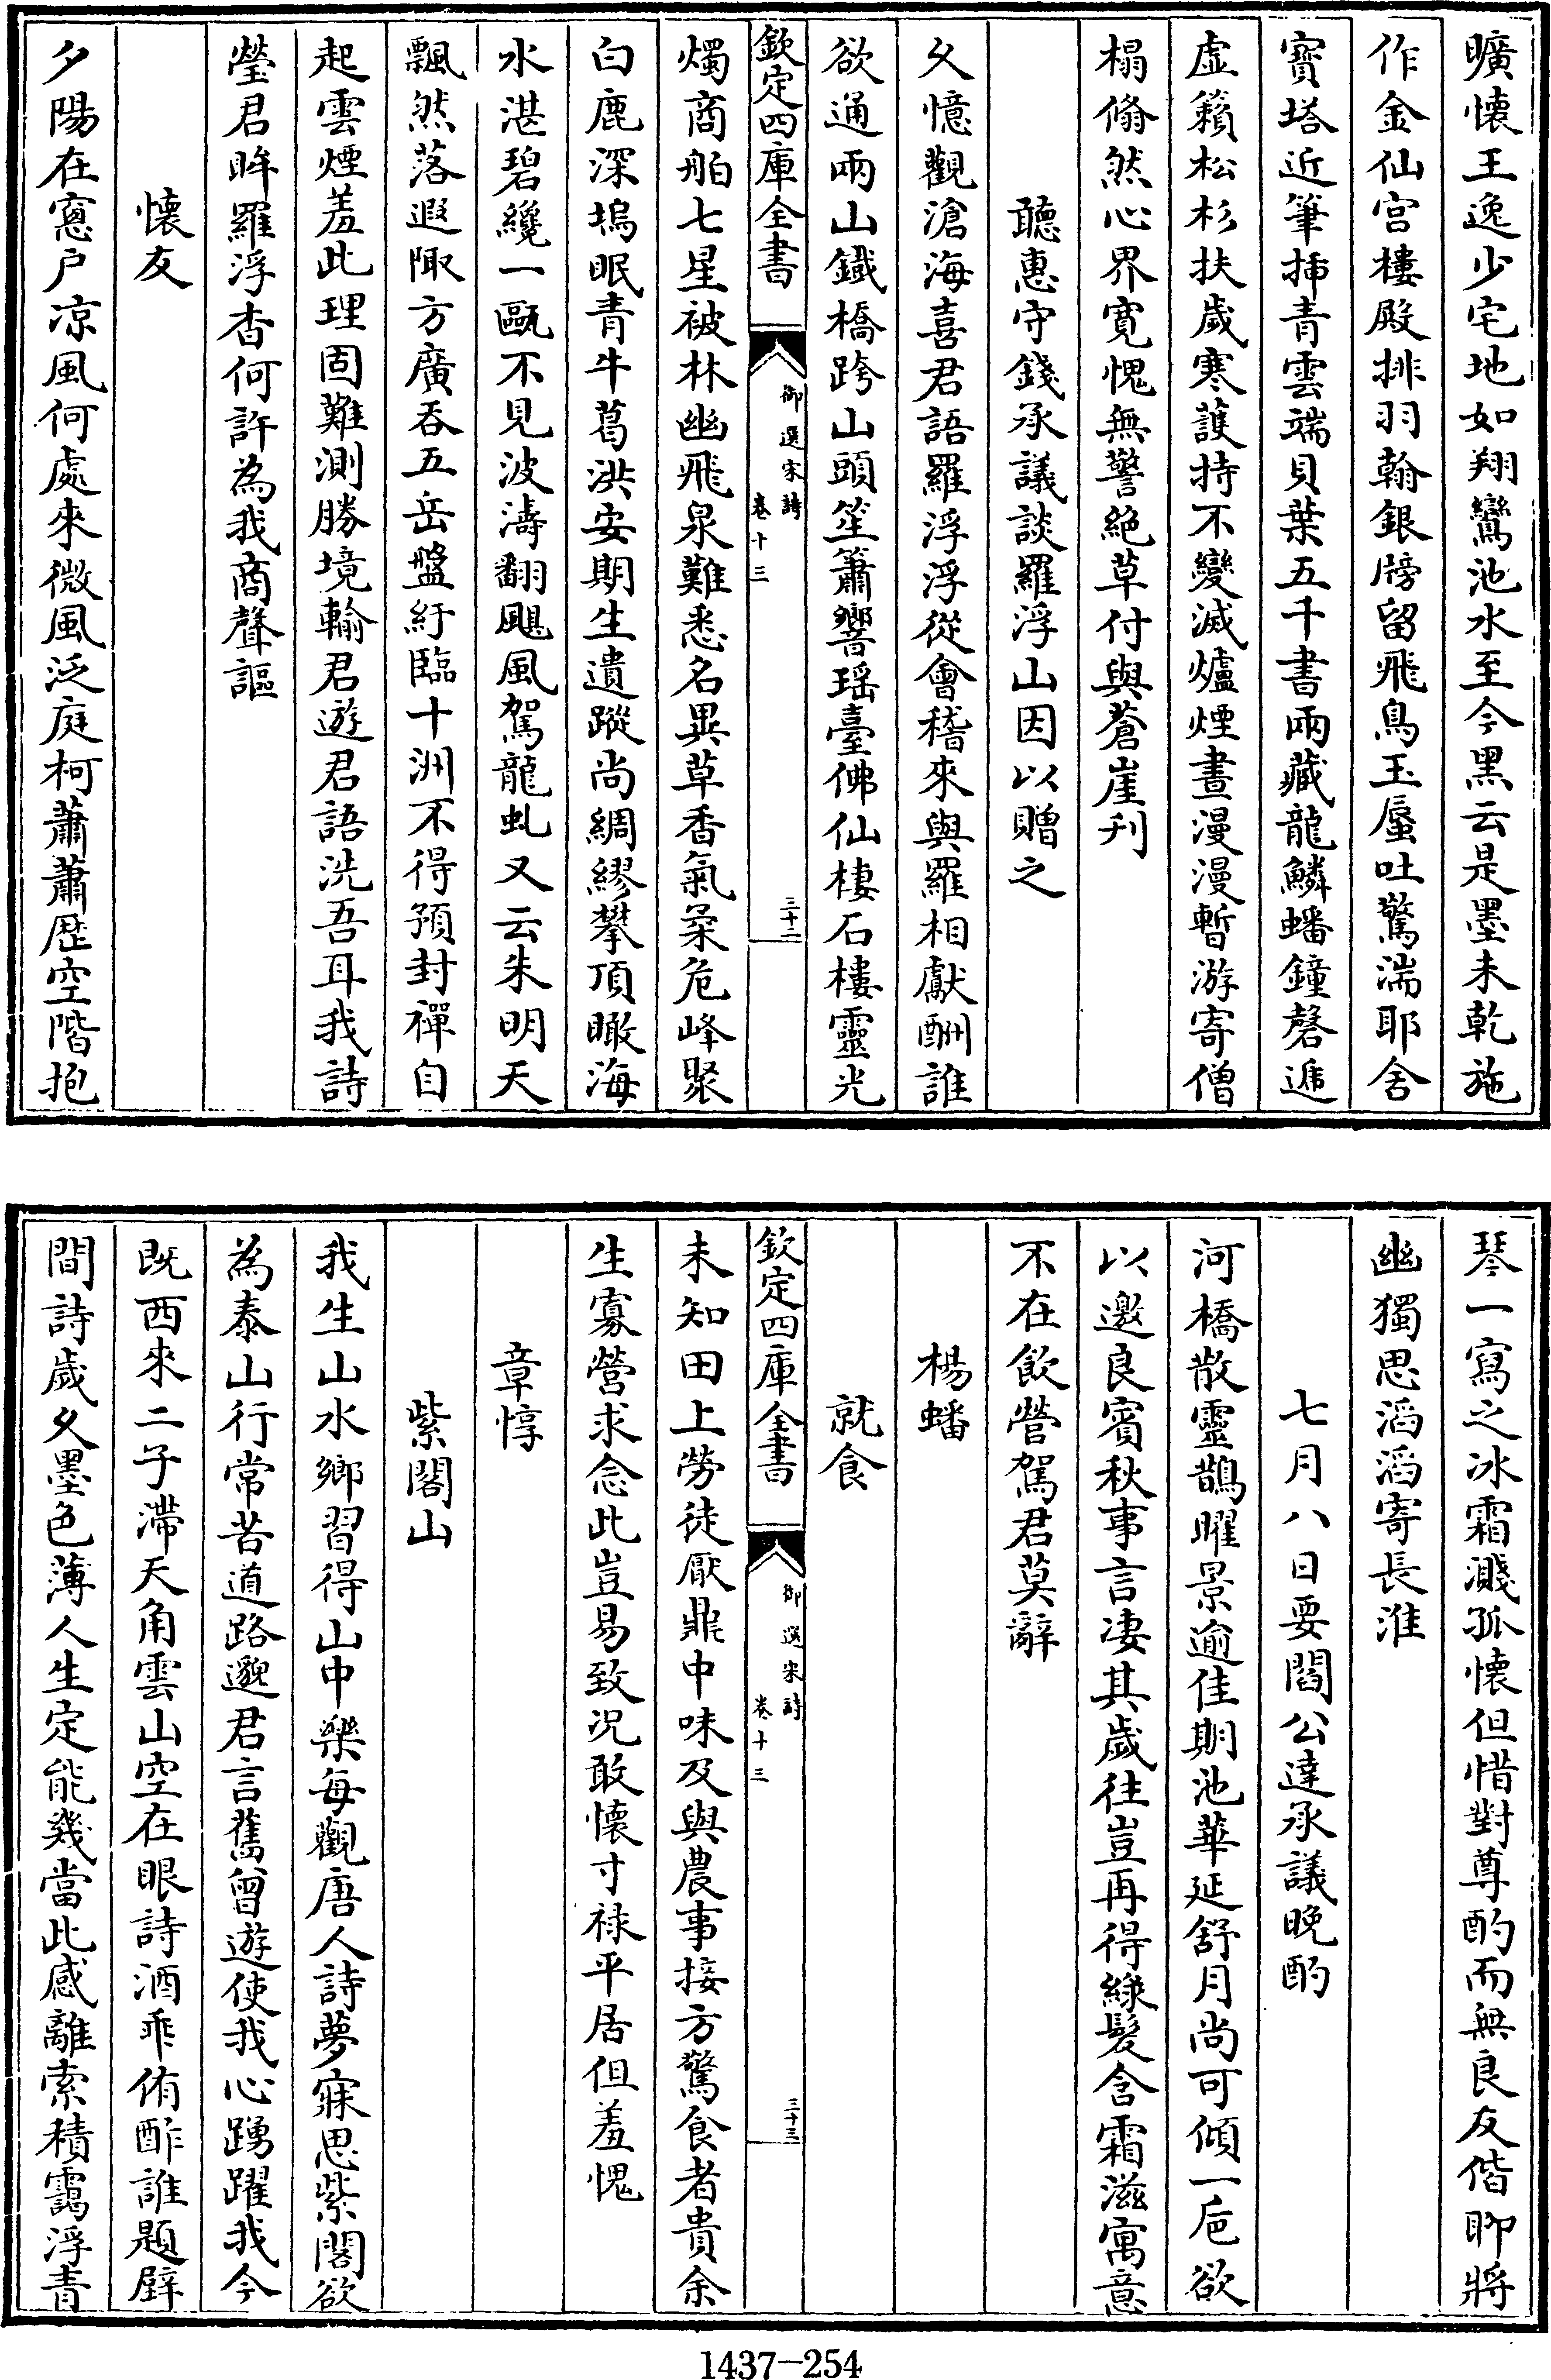 曠懐王逸少宅地如翔鸞池水至今黑云是墨未乾施
作金仙宫樓殿排羽翰銀牓留飛鳥玉蜃吐驚湍耶舍
寳塔近筆揷青雲端貝葉五千書兩藏龍鱗蟠鐘磬遞
虚籟松杉扶歲寒護持不變滅爐煙晝漫漫暫游寄僧
榻翛然心界寛愧無警絶草付與蒼崖刋
聽惠守錢承議談羅浮山因以贈之
乆憶觀滄海喜君語羅浮浮從會稽來與羅相獻酬誰
欲通兩山鐵橋跨山頭笙簫響瑶臺佛仙棲石樓靈光
欽定四庫全書
御選宋詩
卷十三
三十二
燭商舶七星被林幽飛泉難悉名異草香氣柔危峰聚
白鹿深塢眠青牛葛洪安期生遺蹤尚綢繆攀頂瞰海
水湛碧纔一甌不見波濤翻颶風駕龍虬又云朱明天
飄然落遐陬方廣吞五岳盤紆臨十洲不得預封禪自
起雲煙羞此理固難測勝境輸君遊君語洗吾耳我詩
瑩君眸羅浮杳何許為我商聲謳
懐友
夕陽在窻戸凉風何處來微風泛庭柯蕭蕭歴空階抱
琴一寫之冰霜濺孤懐但惜對尊酌而無良友偕聊將
幽獨思滔滔寄長淮
七月八日要閻公達承議晚酌
河橋散靈鵲曜景逾佳期池華延舒月尚可傾一巵欲
以邀良賓秋事言凄其歲往豈再得緑髮含霜滋寓意
不在飲營駕君莫辭
楊蟠
就食
欽定四庫全書
御選宋詩
卷十三
三十三
未知田上勞徒厭鼎中味及與農事接方驚食者貴余
生寡營求念此豈易致况敢懐寸禄平居但羞愧
章惇
紫閣山
我生山水鄉習得山中樂每觀唐人詩夢寐思紫閣欲
為泰山行常苦道路邈君言舊曾遊使我心踴躍我今
既西來二子滯天角雲山空在眼詩酒乖侑酢誰題壁
間詩歲乆墨色薄人生定能幾當此感離索積靄浮青
1437—254